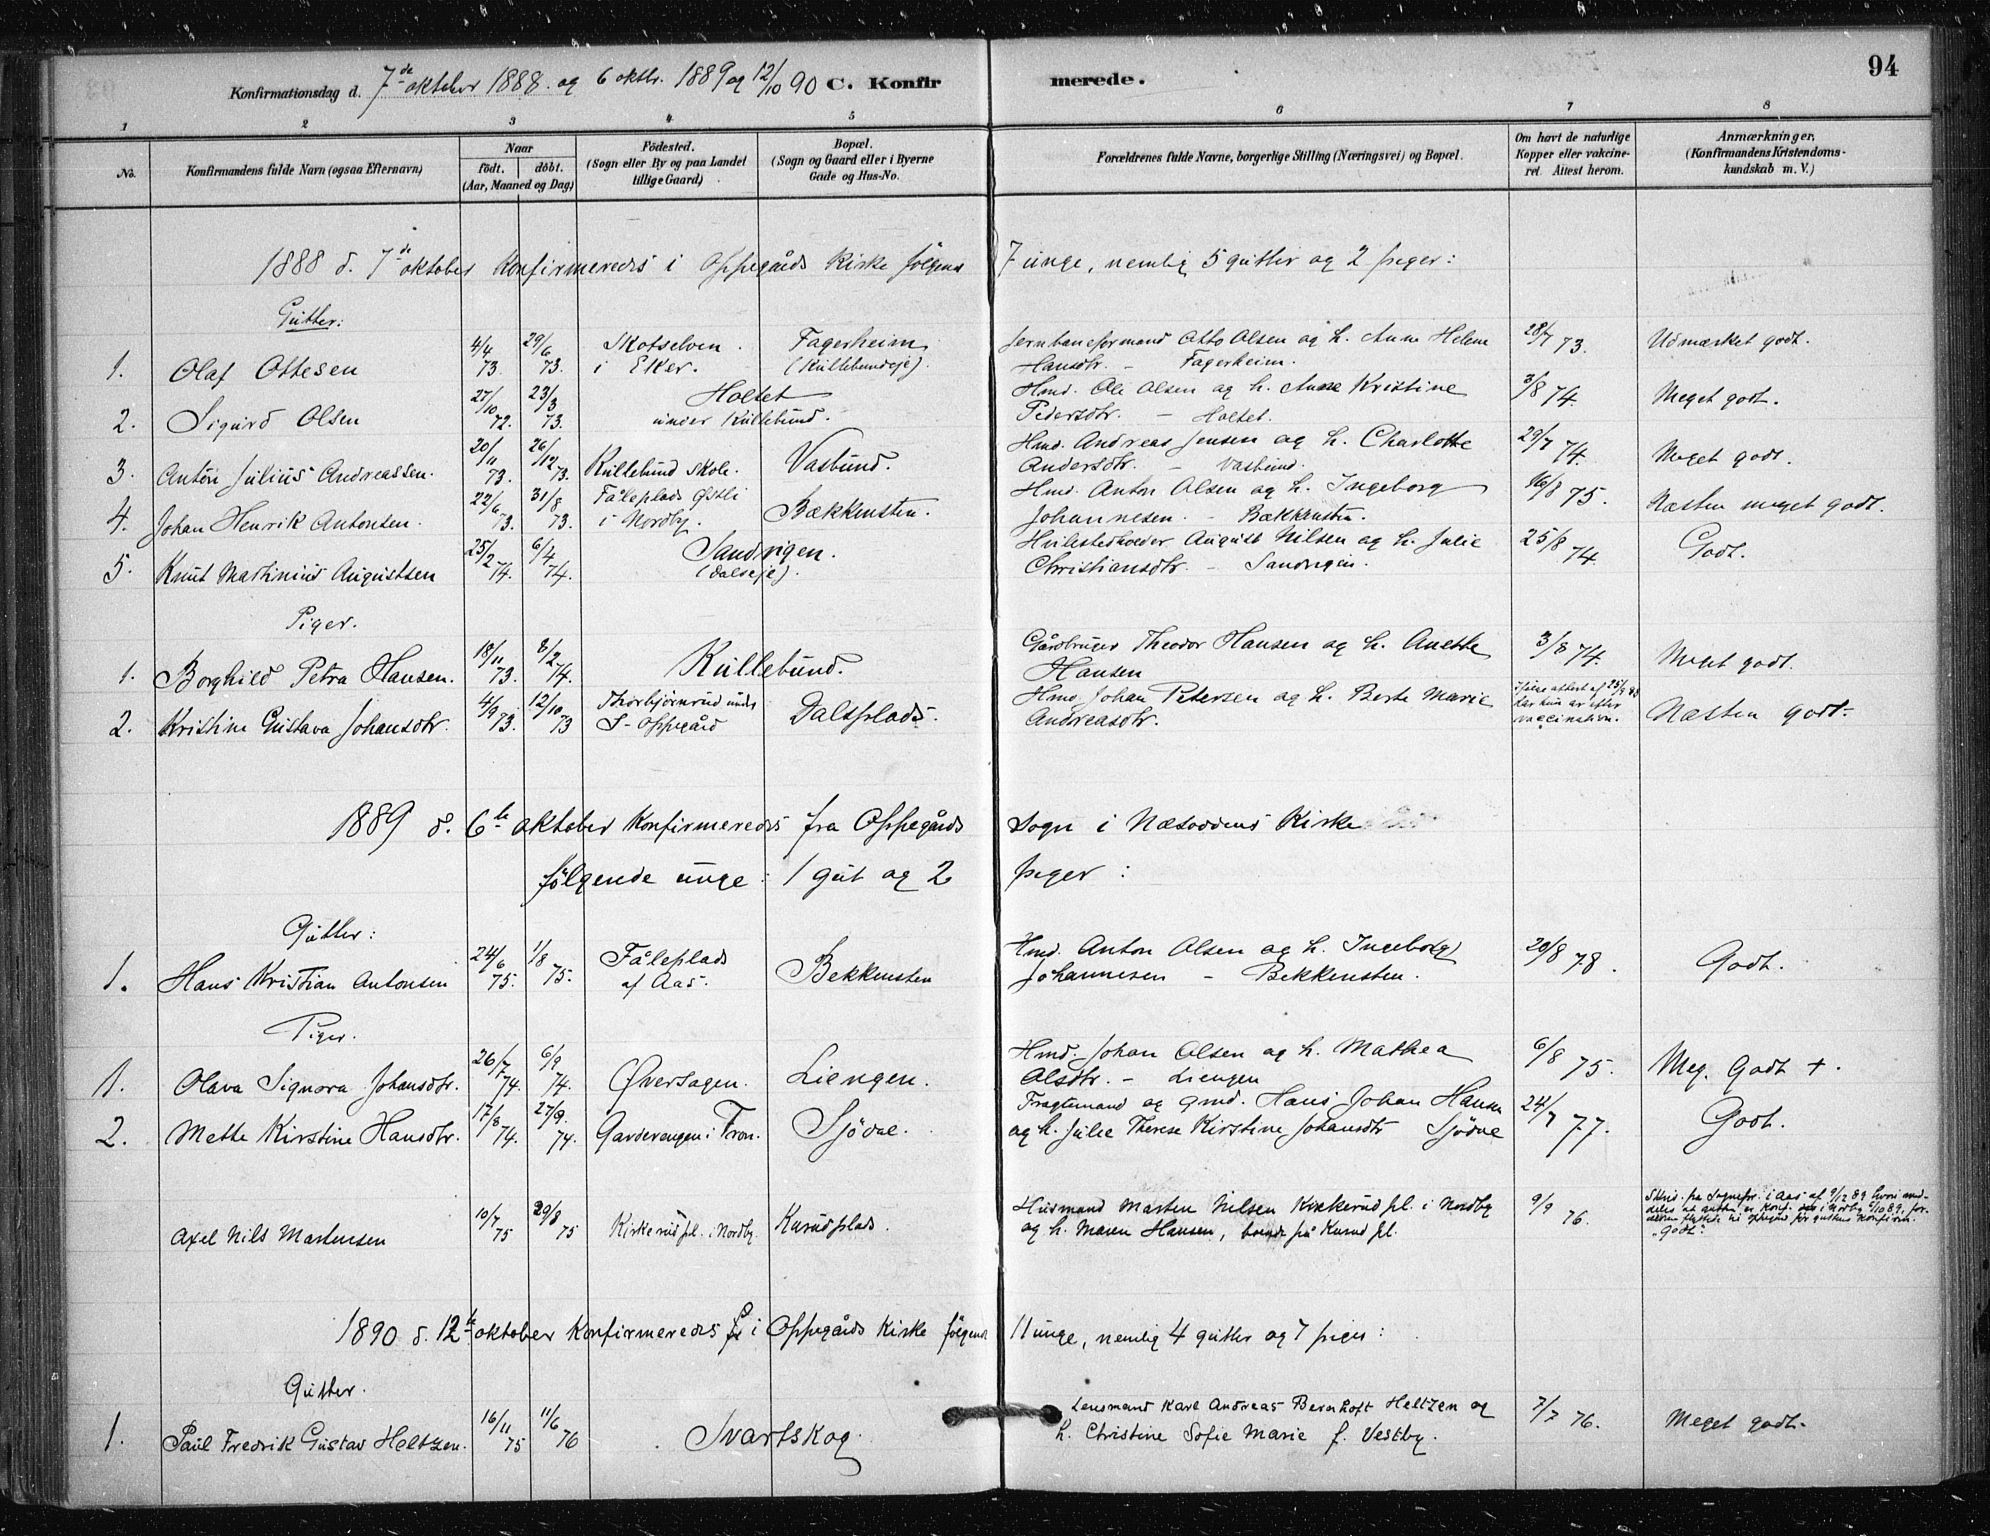 94
Konfirmationsdag d. 7de oktober 1888. og 6 oktbr. 1889 og 12/10 90 C. Konfirmerede.
1 2 3 4 5 6 7 8
No.
Konfirmandens fulde Navn (ogsaa Efternavn)
Naar
födt. döbt.
(Aar, Maaned og Dag)
Födested.
(Sogn eller By og paa Landet
tillige Gaard)
Bopæl.
(Sogn og Gaard eller i Byerne
Gade og Hus-No.
Forældrenes fulde Navne, borgerlige Stilling (Næringsvei) og Bopæl.
Om havt de naturlige
Kopper eller vakcine-
ret. Attest herom.
Anmærkninger,
(Konfirmandens Kristendoms-
kundskab m. V.)
1888 d. 7de oktober konfirmeredes i Oppegårds Kirke følgende 7 unge, nemlig 5 gutter og 2 piger:
Gutter:
1. Olaf Ottesen 4/4 73. 29/6 73. Skotselven i Eker. Fagerheim (Kullebundeje). Jernbaneformand Otto Olsen og h. Anne Helene Hansdtr. – Fagerheim. 28/7 73. Udmærket godt.
2. Sigurd Olsen 27/10 72. 23/3 73. Holtet under Kullebund. Hmd. Ole Olsen og h. Anne Kristine Pedersdtr. – Holtet. 3/8 74. Meget godt.
3. Anton Julius Andreassen. 20/11 73. 26/12 73. Kullebund skole. Vasbund. Hmd. Andreas Jensen og h. Charlotte Andersdtr. – Vasbund. 29/7 74. Meget godt.
4. Johan Henrik Antonsen. 22/6 73. 31/8 73. Fåleplads Østli i Nordby. Bækkensten. Hmd. Anton Olsen og h. Ingeborg Johannesen. – Bækkensten. 16/8 75. Næsten meget godt.
5. Knut Martinius Augustsen 25/2 74. 6/4 74. Sandvigen. (Dalseje). Hvilestedholder August Nilsen og h. Julie Christiansdtr. – Sandvigen. 25/8 74. Godt.
Piger.
1. Borghild Petra Hansen. 18/11 73. 8/2 74. Kullebund. Gårdbruger Theodor Hansen og h. Anette Hansen 3/8 74. Meget godt.
2. Kristine Gustava Johansdtr. 4/9 73. 12/10 73 Thorbjørnrud under S-Oppegård Dalsplads. Hmd. Johan Petersen og h. Berte Marie Andreasdtr. Ifølge attest af 25/9 88 har hun ar efter vaccination. Næsten godt.
1889 d. 6te oktober konfirmeredes fra Oppegårds Sogn i Næsoddens Kirke
følgende unge: 1 gut og 2 piger:
Gutter:
1. Hans Kristian Antonsen 24/6 75. 1/8 75. Fåleplads af Aas. Bekkensten Hmd. Anton Olsen og h. Ingeborg Johannesen – Bekkensten. 20/8 78. Godt.
Piger.
1. Olava Signora Johansdtr. 26/7 74. 6/9 74. Øversagen. Liengen. Hmd. Johan Olsen og h. Mathea Olsdtr. – Liengen 6/8 75. Meg. Godt +.
2. Mette Kirstine Hansdtr. 17/8 74. 27/9. 74. Garderengen i Fron. Sjödal. Fragtemand og gmd. Hans Johan Hansen og h. Julie Therese Kirstine Johansdtr Sjödal 24/7 77. Godt.
Axel Nils Martensen 10/7 75 29/8 75 Kirkerud pl. i Nordby. Kurudplads. Husmand Marten Nilsen Kirkerud pl. i Nordby og h. Maren Hansen, boende på Kurud pl. 9/9 76. Skriv. fra Sognepr. i Aas af 9/12 89 hvori meddeles at gutten er konf. i Nordby 6/10 89. forældrene flyttede til Oppegård før guttens konfirm. "Godt".
1890 d. 12te oktober konfirmeredes i Oppegårds Kirke følgende 11 unge, nemlig 4 gutter og 7 piger:
Gutter.
1. Paul Fredrik Gustav Heltzen. 16/11 75 11/6 76 Svartskog. Lensmand Karl Andreas Bernhoft Heltzen og h. Christine Sofie Marie f. Vestby. 7/7 76. Meget godt.